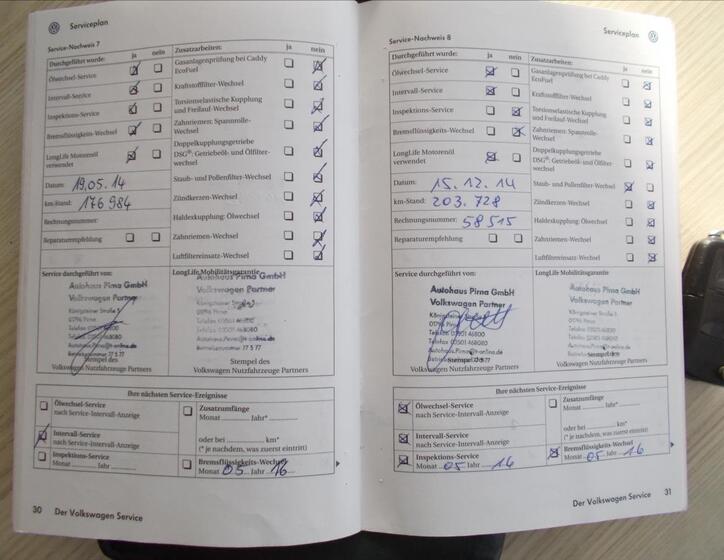 Serviceplan
Service-Nachweis 7
Durchgeführt wurde: ja nein
Ölwechsel-Service
Intervall-Service
Inspektions-Service
Bremsflüssigkeits-Wechsel
LongLife Motorenöl
verwendet
Datum: 19.05.14
km-Stand: 176 984
Rechnungsnummer:
Reparaturempfehlung
Zusatzarbeiten: ja nein
Gasanlagenprüfung bei Caddy
EcoFuel
Kraftstofffilter-Wechsel
Torsionselastische Kupplung
und Freilauf-Wechsel
Zahnriemen: Spannrolle-
Wechsel
Doppelkupplungsgetriebe
DSG®: Getriebeöl- und Ölfilter-
wechsel
Staub- und Pollenfilter-Wechsel
Zündkerzen-Wechsel
Haldexkupplung: Ölwechsel
Zahnriemen-Wechsel
Luftfiltereinsatz-Wechsel
Service durchgeführt von:
Autohaus Pirna GmbH
Volkswagen Partner
Königsteiner Straße
01796 Pirna
Stempel des
Volkswagen Nutzfahrzeuge Partners
LongLife Mobilitätsgarantie
Autohaus Pirna GmbH
Volkswagen Partner
Königsteiner Straße
01796 Pirna
Stempel des
Volkswagen Nutzfahrzeuge Partners
Ihre nächsten Service-Ereignisse
Ölwechsel-Service
nach Service-Intervall-Anzeige
Intervall-Service
nach Service-Intervall-Anzeige
Inspektions-Service
Monat Jahr
Zusatzumfänge
Monat Jahr*
oder bei km*
(* je nachdem, was zuerst eintritt)
Bremsflüssigkeits-Wechsel
Monat 05 Jahr 16
30 Der Volkswagen Service
Serviceplan
Service-Nachweis 8
Durchgeführt wurde: ja nein
Ölwechsel-Service
Intervall-Service
Inspektions-Service
Bremsflüssigkeits-Wechsel
LongLife Motorenöl
verwendet
Datum: 15.12.14
km-Stand: 203.728
Rechnungsnummer: 58515
Reparaturempfehlung
Zusatzarbeiten: ja nein
Gasanlagenprüfung bei Caddy
EcoFuel
Kraftstofffilter-Wechsel
Torsionselastische Kupplung
und Freilauf-Wechsel
Zahnriemen: Spannrolle-
Wechsel
Doppelkupplungsgetriebe
DSG®: Getriebeöl- und Ölfilter-
wechsel
Staub- und Pollenfilter-Wechsel
Zündkerzen-Wechsel
Haldexkupplung: Ölwechsel
Zahnriemen-Wechsel
Luftfiltereinsatz-Wechsel
Service durchgeführt von:
Autohaus Pirna GmbH
Volkswagen Partner
Königsteiner Straße
01796 Pirna
Stempel des
Volkswagen Nutzfahrzeuge Partners
LongLife Mobilitätsgarantie
Autohaus Pirna GmbH
Volkswagen Partner
Königsteiner Straße
01796 Pirna
Stempel des
Volkswagen Nutzfahrzeuge Partners
Ihre nächsten Service-Ereignisse
Ölwechsel-Service
nach Service-Intervall-Anzeige
Intervall-Service
nach Service-Intervall-Anzeige
Inspektions-Service
Monat 05 Jahr 16
Zusatzumfänge
Monat Jahr*
oder bei km*
(* je nachdem, was zuerst eintritt)
Bremsflüssigkeits-Wechsel
Monat 05 Jahr 16
Der Volkswagen Service 31